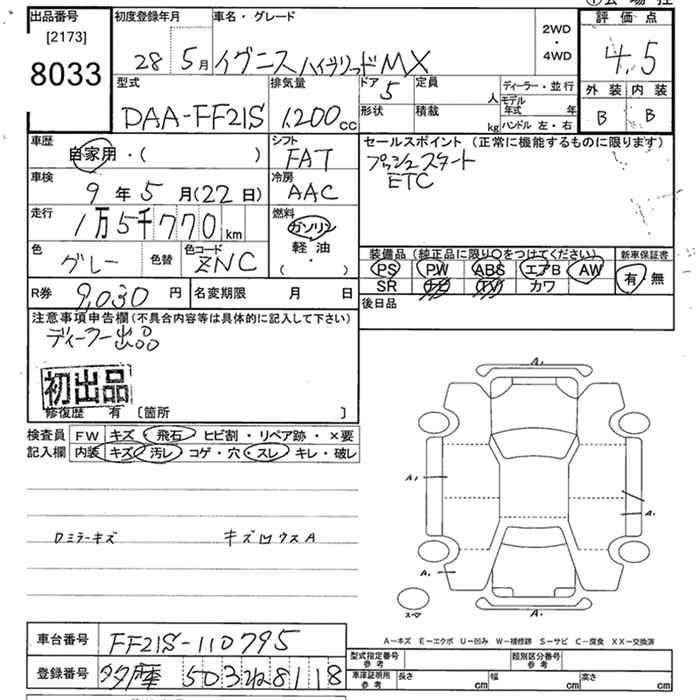 出品番号 初度登録年月 車名・グレード 2WD・4WD 評価点
[2173]
8033 28 5月 イグニスハイブリッドMX 4.5
型式 排気量 ドア 5 定員 人 ディーラー・並行 外装 内装
DAA-FF21S 1,200cc 形状 積載 kg モデル年式 年 B B
ハンドル 左・右
車歴 自家用・( ) シフト FAT セールスポイント (正常に機能するものに限ります)
プッシュスタート
車検 9年5月(22日) 冷房 AAC ETC
走行 1万5千770km 燃料 ガソリン
軽油
・
( )
色 グレー 色替 色コード ZNC 装備品(純正品に限り○をつけてください) 新車保証書
PS PW ABS エアB AW 有 無
R券 9,030円 名変期限 月 日 SR ナビ TV カワ
後日品
注意事項申告欄(不具合内容等は具体的に記入して下さい)
ディーラー出品
初出品
修復歴 有 [箇所 ]
検査員 FW キズ・飛石・ヒビ割・リペア跡・×要
記入欄 内装 キズ・汚レ・コゲ・穴・スレ・キレ・破レ
A1
A1
A1
A1
A1
ロミラーキズ キズ凹ウスA
スマ
A-キズ E-エクボ U-凹み W-補修跡 S-サビ C-腐食 XX-交換済
車台番号 FF21S-110795 型式指定番号 参考 類別区分番号 参考
登録番号 多摩 503 ね 8118 車庫証明用 参考 長さ cm 幅 cm 高さ cm